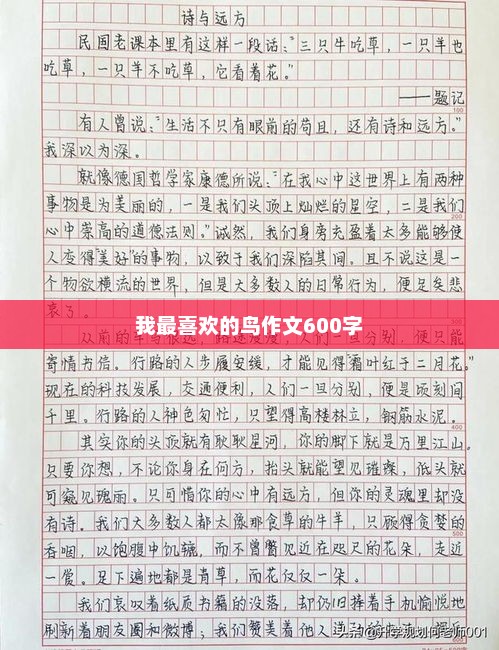 诗与远方
民国老课本里有这样一段话：“三只牛吃草，一只羊也
吃草，一只羊不吃草，它看着花。”
——题记
100
有人曾说：“生活不只有眼前的苟且，还有诗和远方。”
我深以为深。
就像德国哲学家康德所说：“在我心中这世界上有两种
事物是为美丽的，一是我们头顶上灿烂的星空，二是我们
200
心中崇高的道德法则。”诚然，我们身旁充盈着太多能够使
人变得“美好”的事物，以致于我们深陷其间。且不说这是一
个物欲横流的世界，但是大多数人的日常行为，便足矣悲
哀了。
我最喜欢的鸟作文600字
从前的车马很远，路途漫漫，人们一旦分别，便只能
寄情书信。行路的人步履安缓，才能见得“霜叶红于二月花。”
现在的科技发展，交通便利，人们一旦分别，便是顷刻间
千里。行路的人神色匆忙，只望得高楼林立，钢筋水泥。
400
其实你的头顶就有耿耿星河，你的脚下就是万里江山。
只要你想，不论你身在何方，抬头就能望见璀璨，低头就
可窥见瑰丽。只可惜你的心中有远方，但你的灵魂里却没
有诗。我们大多数人都太像那食草的牛羊，只顾得贪婪的
500
吞咽，以饱腹中饥辘，而不曾瞥见近在咫尺的花朵，走近
一俊。足下遍地都是青草，而花仅仅一朵。
我们哀叹着纸质书籍的没落，却仍旧捧着手机愉悦地
刷新着朋友圈和微博；我们赞美着他人
头条@升学规划何老师001